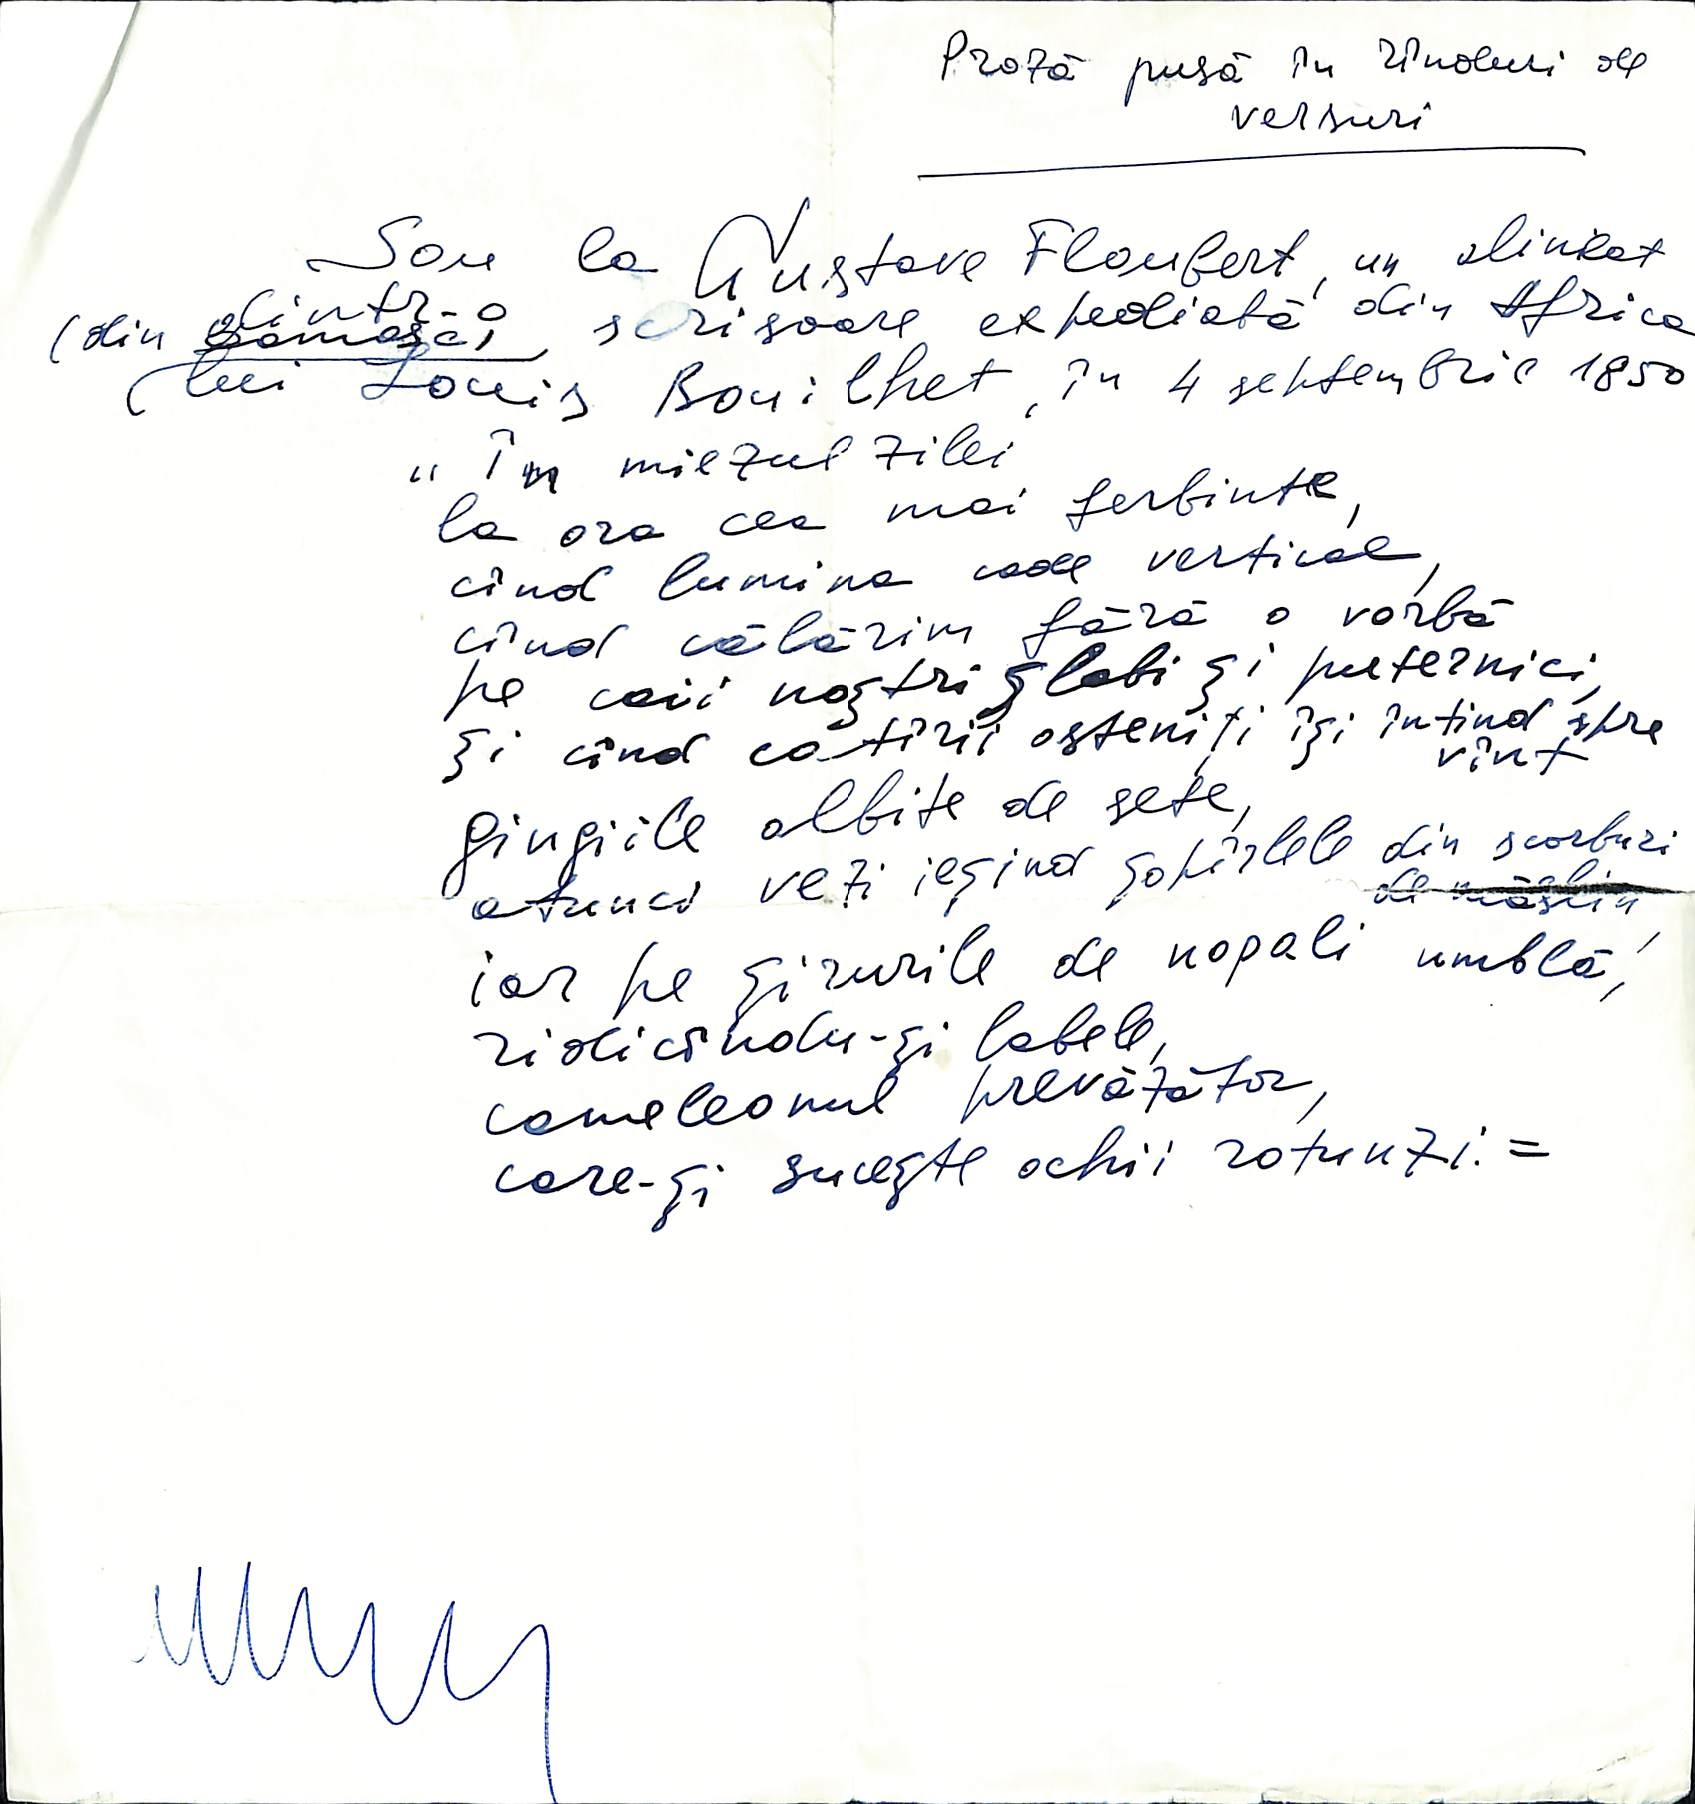 Proză pusă în rînduri de
versuri
Sau la Gustave Flaubert, un alineat
dintr-o
(din Damasc, scrisoare expediată din Africa
lui Louis Bouilhet, în 4 septembrie 1850
„În miezul zilei
la ora cea mai ferbinte,
cînd lumina cade vertical,
cînd călărim fără o vorbă
pe caii noștri slabi și puternici,
și cînd catîrii osteniți își întind spre
vînt
gingiile albite de sete,
atunci vezi ieșind șopîrlele din scorburi
de măslin
iar pe șirurile de nopali umblă,
ridicîndu-și labele,
cameleonul prevăzător,
care-și sucește ochii rotunzi. =